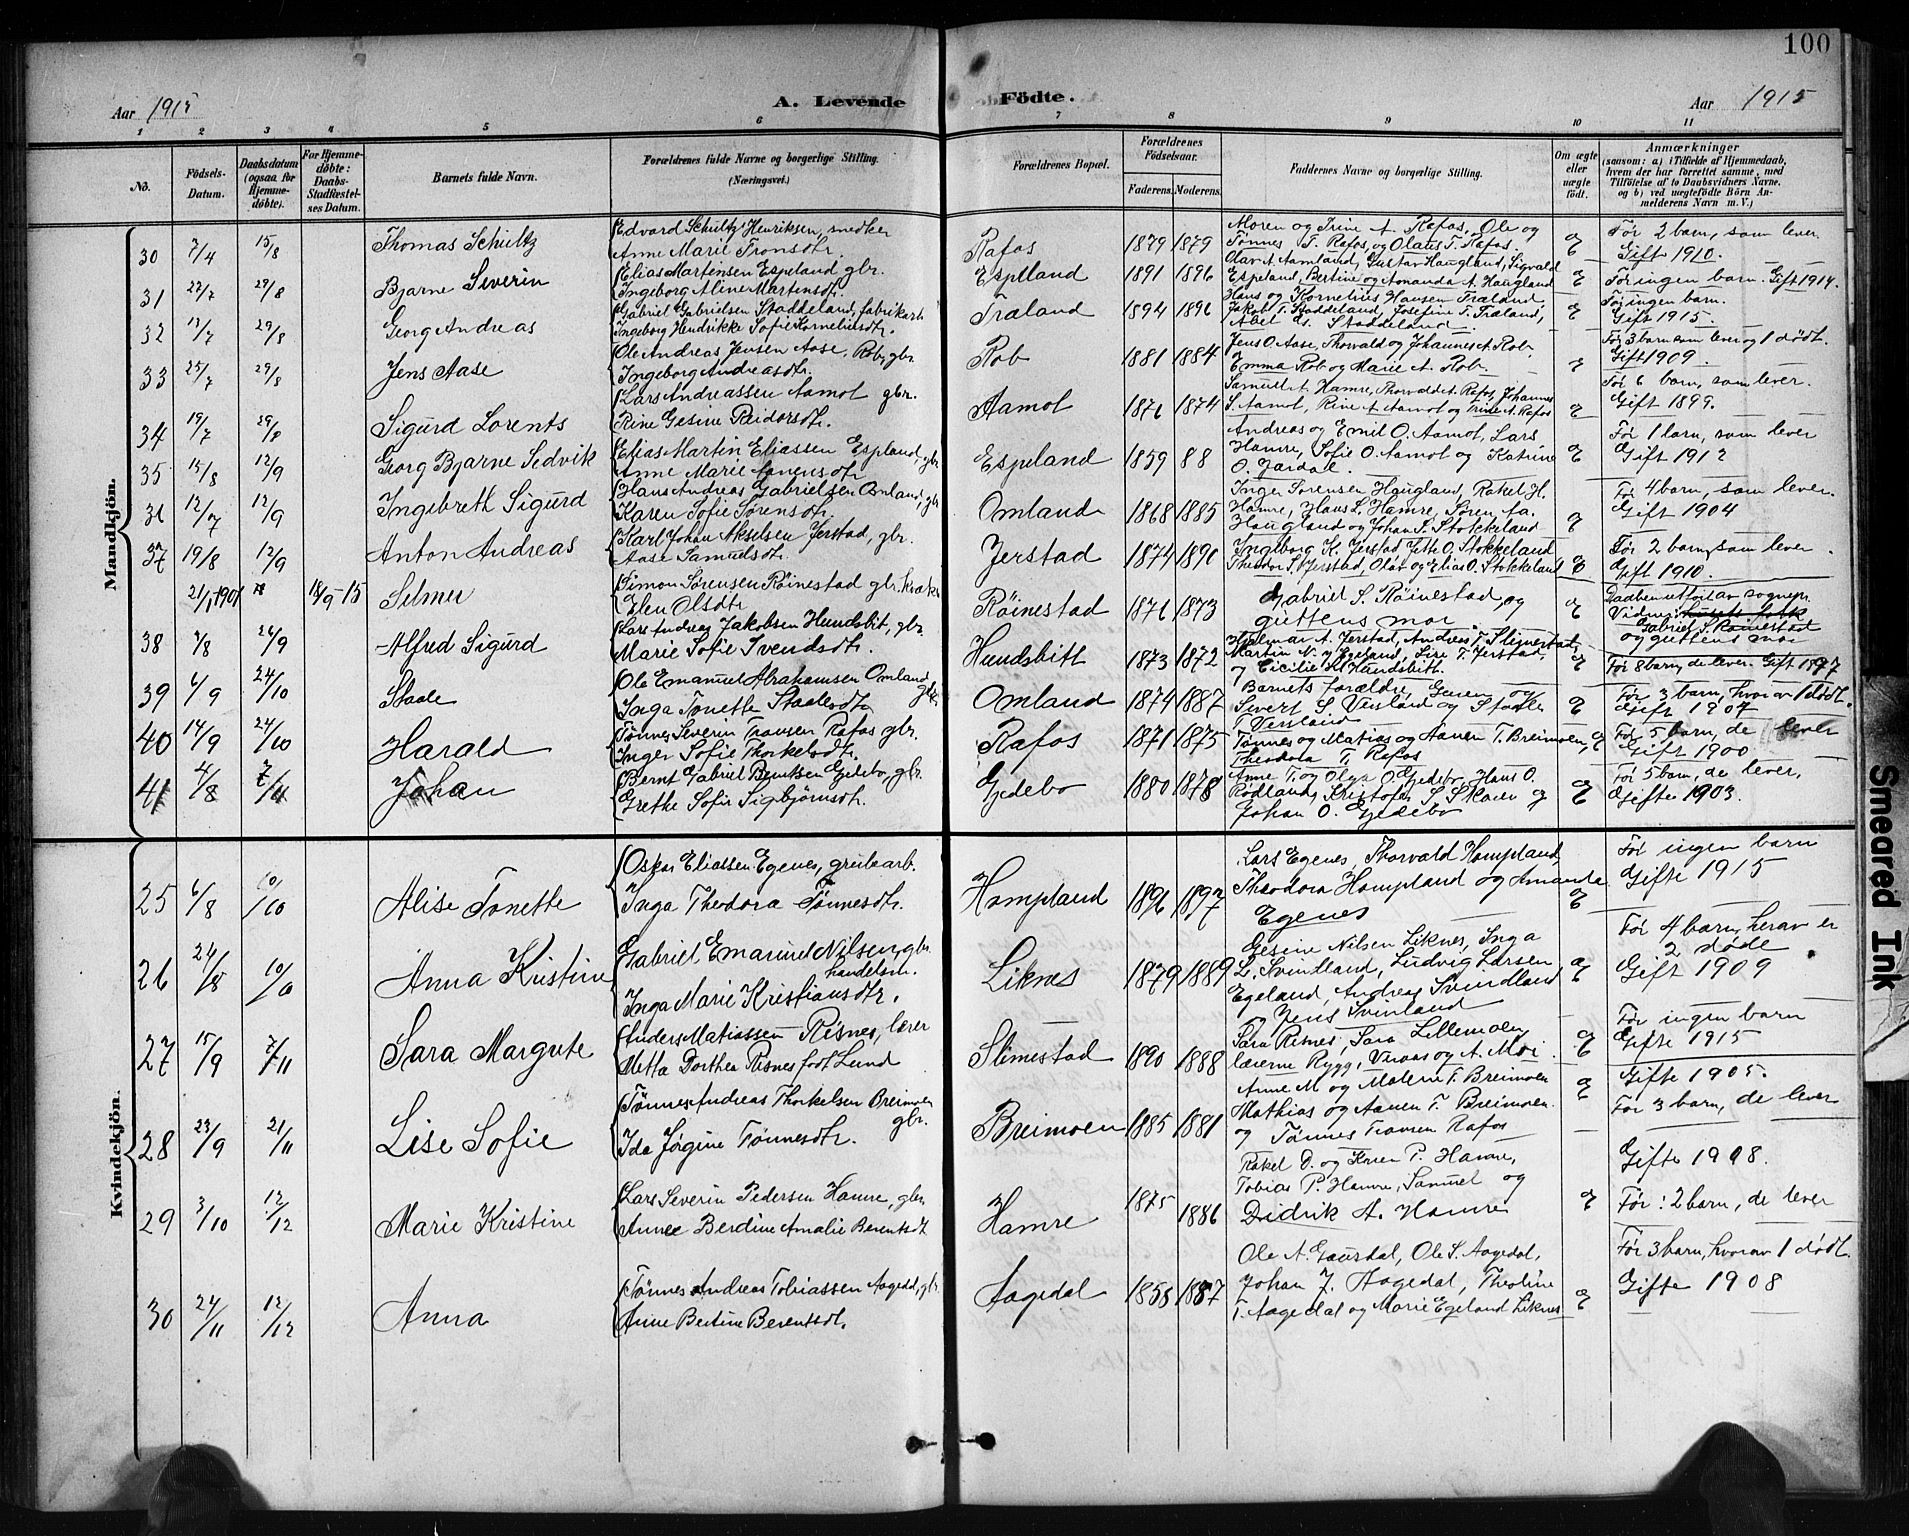 100
Aar 1915
A. Levende
Födte.
Aar 1915
1 2 3 4 5 6 7 8 9 10 11
No.
Födsels-Datum.
Daabsdatum (ogsaa for Hjemmedøbte).
For Hjemmedøbte: Daabs-Stadfestelses Datum.
Barnets fulde Navn.
Forældrenes fulde Navne og borgerlige Stilling.
(Næringsvei.)
Forældrenes Bopæl.
Forældrenes Födselsaar.
Faderens. Moderens.
Faddernes Navne og borgerlige Stilling.
Om ægte eller uægte födt.
Anmærkninger
(saasom: a) i Tilfælde af Hjemmedaab, hvem der har forrettet samme, med Tilföielse af to Daabsvidners Navne, og b) ved uægtefödte Börn Anmelderens Navn m. V.)
Mandkjön.
30 7/4 15/8 Thomas Schultz
Edvard Schultz Henriksen, smedker
Anne Marie Tronsdtr.
Rafos 1879 1879
Maren og Trine A. Rafos, Ole og
Tønnes T. Rafos, og Olaus T. Rafos.
E
Før 2 barn, som lever.
Gift 1910.
31 22/7 29/8 Bjarne Severin
Elias Martinsen Espeland gbr.
Ingeborg Aline Martensdtr.
Espeland 1891 1896
Olav A. Aamland, Gustav Haugland, Sigvald
Espeland, Bertine og Amanda A. Haugland
E
Før ingen barn. Gift 1914.
32 12/7 29/8 Georg Andreas
Gabriel Gabrielsen Staddeland, fabrikarb.
Ingeborg Hendrikke Sofie Korneliusdtr.
Træland 1894 1896
Hans og Kornelius Hansen Træland,
Jakob T. Staddeland, Josefine T. Træland,
Abel G. Staddeland.
E
Før ingen barn.
Gift 1915.
33 25/7 29/8 Jens Aase
Ole Andreas Jensen Aase, Rob, gbr.
Ingeborg Andreasdtr.
Rob 1881 1884
Jens O. Aase, Thorvald og Johannes A. Rob.
Emma Rob og Marie A. Rob.
E
Før 3 barn som lever og 1 dødt.
Gift 1909.
34 19/7 29/8 Sigurd Lorents
Lars Andreassen Aamot gbr.
Rine Gesine Reidarsdtr.
Aamot 1876 1874
Samuel A. Hamre, Thorvald A. Rafos, Johannes
S. Aamot, Rine A. Aamot og Trine A. Rafos
E
Før 6 barn, som lever.
Gift 1899.
35 15/8 12/9 Georg Bjarne Sedvik
Elias Martin Eliassen Espeland, gbr.
Anne Marie Aanensdtr
Espeland 1859 88
Andreas og Emil O. Aamot, Lars
Hamre, Sofie O. Aamot og Katrine
O. Jardal.
E
Før 1 barn, som lever
Gift 1912
36 12/7 12/9 Ingebreth Sigurd
Hans Andreas Gabrielsen Omland, gbr
Karen Sofie Sørensdtr.
Omland 1868 1885
Inger Sørensen Haugland, Rakel H.
Hamre, Hans L. Hamre, Søren Aa.
Haugland og Johan S. Stokkeland
E
Før 4 barn, som lever.
Gift 1904
37 19/8 12/9 Anton Andreas
Karl Johan Akselsen Jerstad, gbr.
Aase Samuelsdtr.
Jerstad 1874 1890
Ingeborg K. Jerstad, Jette O. Stokkeland
Theodor S. Jerstad, Olav og Elias O. Stokkeland
E
Før 2 barn, som lever.
Gift 1910.
21/1 1901 18/9-15 Selmer
Simon Sørensen Röinestad gbr.
Elen Olsdtr
Röinestad 1876 1873
Gabriel S. Röinestad, og
guttens mor.
E
Daaben utført av sognepr.
Vidner:
Gabriel S. Röinestad
og guttens mor
38 7/8 26/9 Alfred Sigurd
Lars Andreas Jakobsen Hundsbit, gbr.
Marie Sofie Svendsdtr.
Hundsbitt 1873 1872
Hjelmar A. Jerstad, Andreas T. Slimestad,
Martin N. Egeland, Sire T. Jerstad,
og Cicilie K. Hundsbitt
E
Før 8 barn, de lever. Gift 1897
39 6/9 24/10 Staale
Ole Emanuel Abrahamsen Omland gbr
Inga Tonette Staalesdtr
Omland 1874 1887
Barnets forældre,
Sivert S. Versland og Staale
T. Versland
E
Før 3 barn, hvorav 1 dødt.
Gift 1907
40 14/9 24/10 Harald
Tønnes Severin Tronsen Rafos gbr.
Inger Sofie Thorkelsdtr.
Rafos 1871 1875
Tønnes og Matias og Aanen T. Breimoen,
Theodora T. Rafos
E
Før 5 barn, de lever
Gift 1900
41 4/8 7/11 Johan
Bernt Gabriel Bentsen Gjedebo, gbr.
Grethe Sofie Sigbjørnsdtr.
Gjedebo 1880 1878
Anne T. og Olga O. Gjedebo, Hans O.
Rødland, Kristofer S. Skaien og
Johan O. Gjedebo
E
Før 5 barn, de lever,
Gifte 1903.
Kvindekjön.
25 6/8 10/10 Alise Tonette
Oskar Eliassen Egenes, grubearb.
Inga Theodora Tønnesdtr.
Hompland 1896 1897
Lars Egenes, Thorvald Hompland,
Theodora Hompland og Amanda
Egenes
E
Før ingen barn
Gifte 1915
26 24/8 10/10 Anna Kristine
Gabriel Emanuel Nilsen, gbr. handelsm.
Inga Marie Kristiansdtr.
Liknes 1879 1889
Gesine Nilsen Liknes, Inga
L. Svindland, Ludvig Larsen
Egeland, Andreas Svindland
og Jens Svinland
E
Før 4 barn, herav er
2 døde
Gift 1909
27 15/9 7/11 Sara Margrete
Anders Matiassen Risnes, lærer
Metta Dorthea Risnes født Lund
Slimestad 1890 1888
Sara Risnes, Sara Lillemoen,
lærerne Rygg, Varaas og A. Moi.
E
Før ingen barn
Gifte 1915
28 23/9 21/11 Lise Sofie
Tønnes Andreas Thorkelsen Breimoen gbr.
Ida Jørgine Tønnesdtr.
Breimoen 1885 1881
Anne M. og Malene T. Breimoen
Mathias og Aanen T. Breimoen
og Tønnes Tronsen Rafos
E
Gifte 1905.
Før 3 barn, de lever
29 3/10 12/12 Marie Kristine
Lars Severin Pedersen Hamre, gbr
Anne Berdine Amalie Berentsdt
Hamre 1875 1886
Rakel D. og Karen P. Hamre,
Tobias P. Hamre, Samuel og
Didrik A. Hamre
E
Gifte 1908.
Før: 2 barn, de lever
30 24/11 12/12 Anna
Tønnes Andreas Tobiassen Aagedal, gbr.
Anne Bertine Berentsdt.
Aagedal 1858 1887
Ole A. Gausdal, Ole S. Aagedal,
Johan J. Aagedal, Theoline
T. Aagedal og Marie Egeland Liknes
E
Før 3 barn, hvorav 1 dødt.
Gifte 1908
Smeared Ink